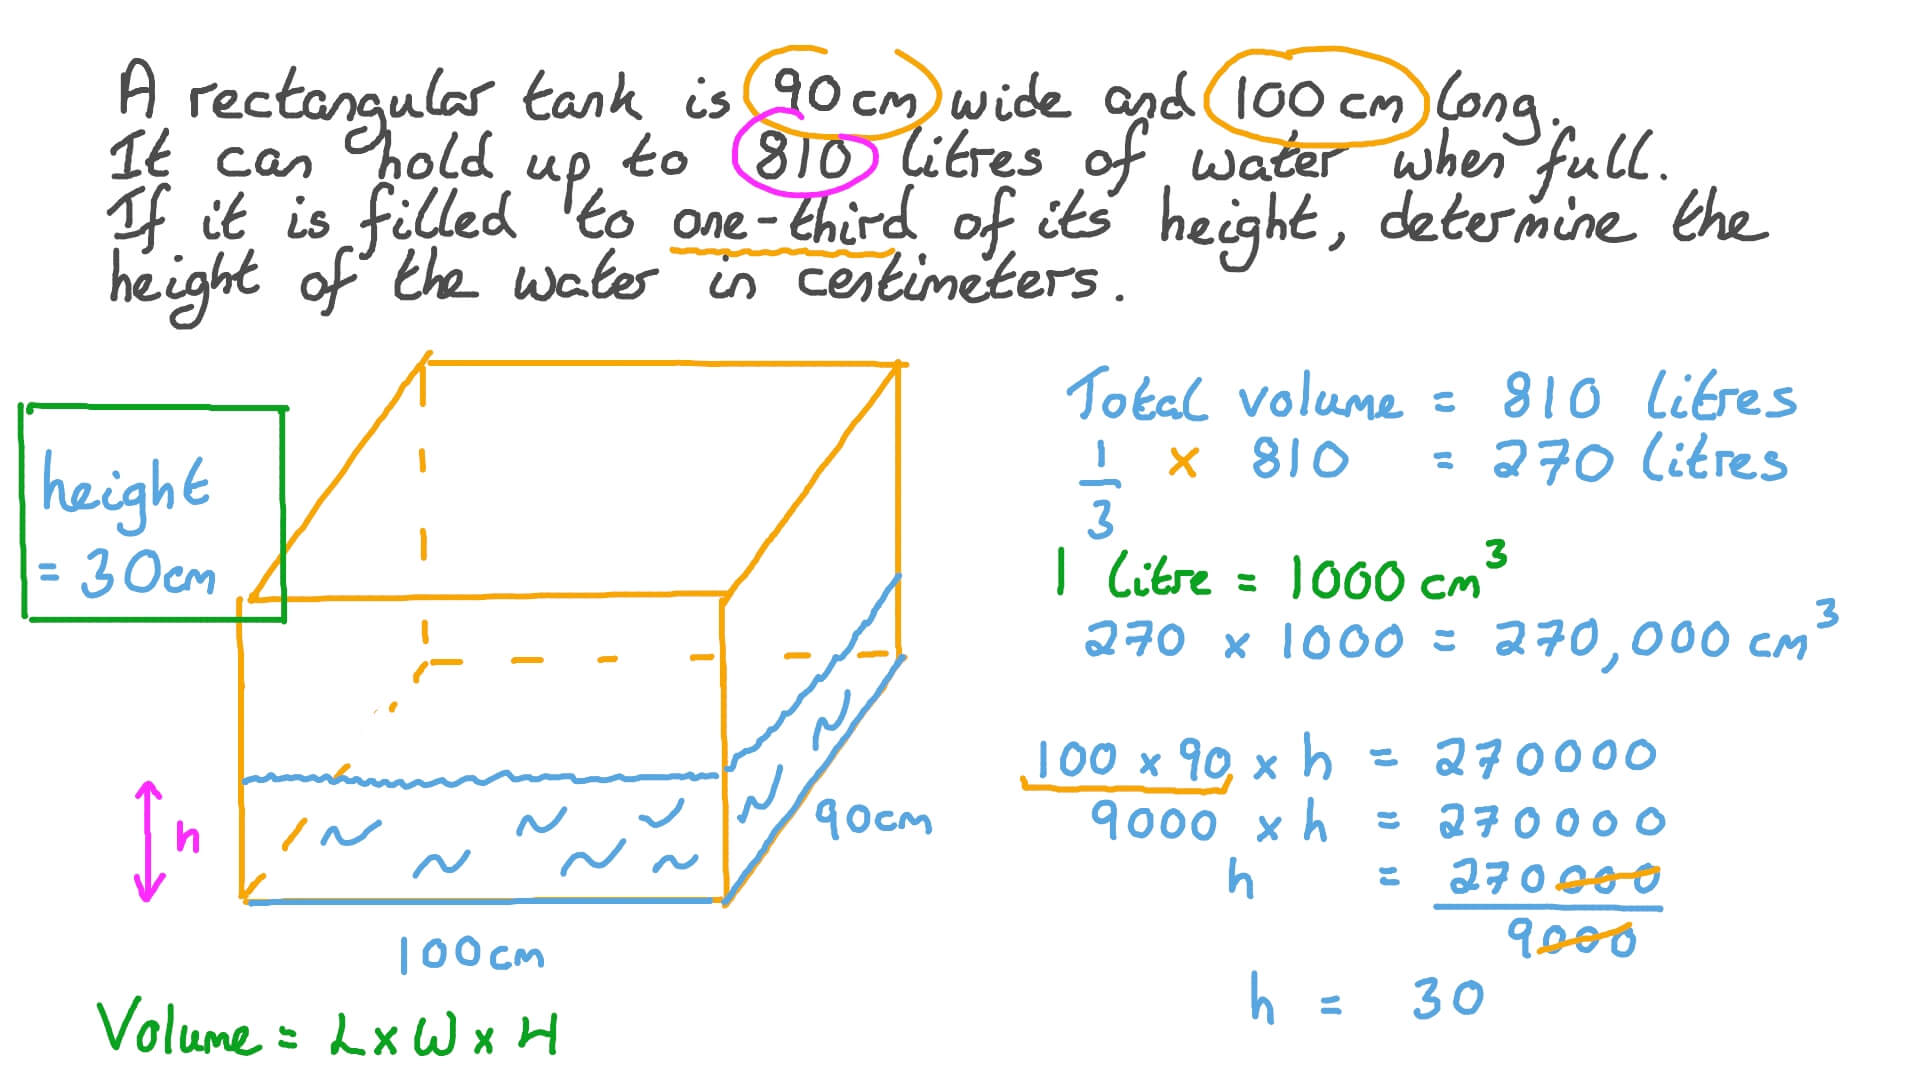 A rectangular tank is 90 cm wide and 100 cm long.
It can hold up to 810 litres of water when full.
If it is filled to one-third of its height, determine the
height of the water in centimeters.
height
= 30cm
h
100cm
90cm
Volume = L x W x H
Total volume = 810 litres
1/3 x 810 = 270 litres
1 litre = 1000 cm³
270 x 1000 = 270,000 cm³
100 x 90 x h = 270000
9000 x h = 270000
h = 270000
9000
h = 30